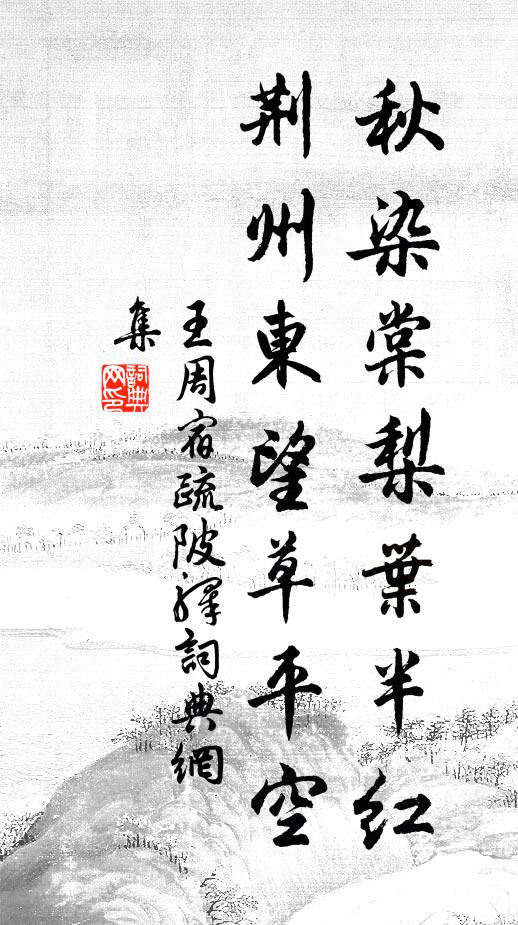 秋染棠梨葉半红
荆州東望草平空
王周宿疏陂驛詞典網
集
詞典
网印